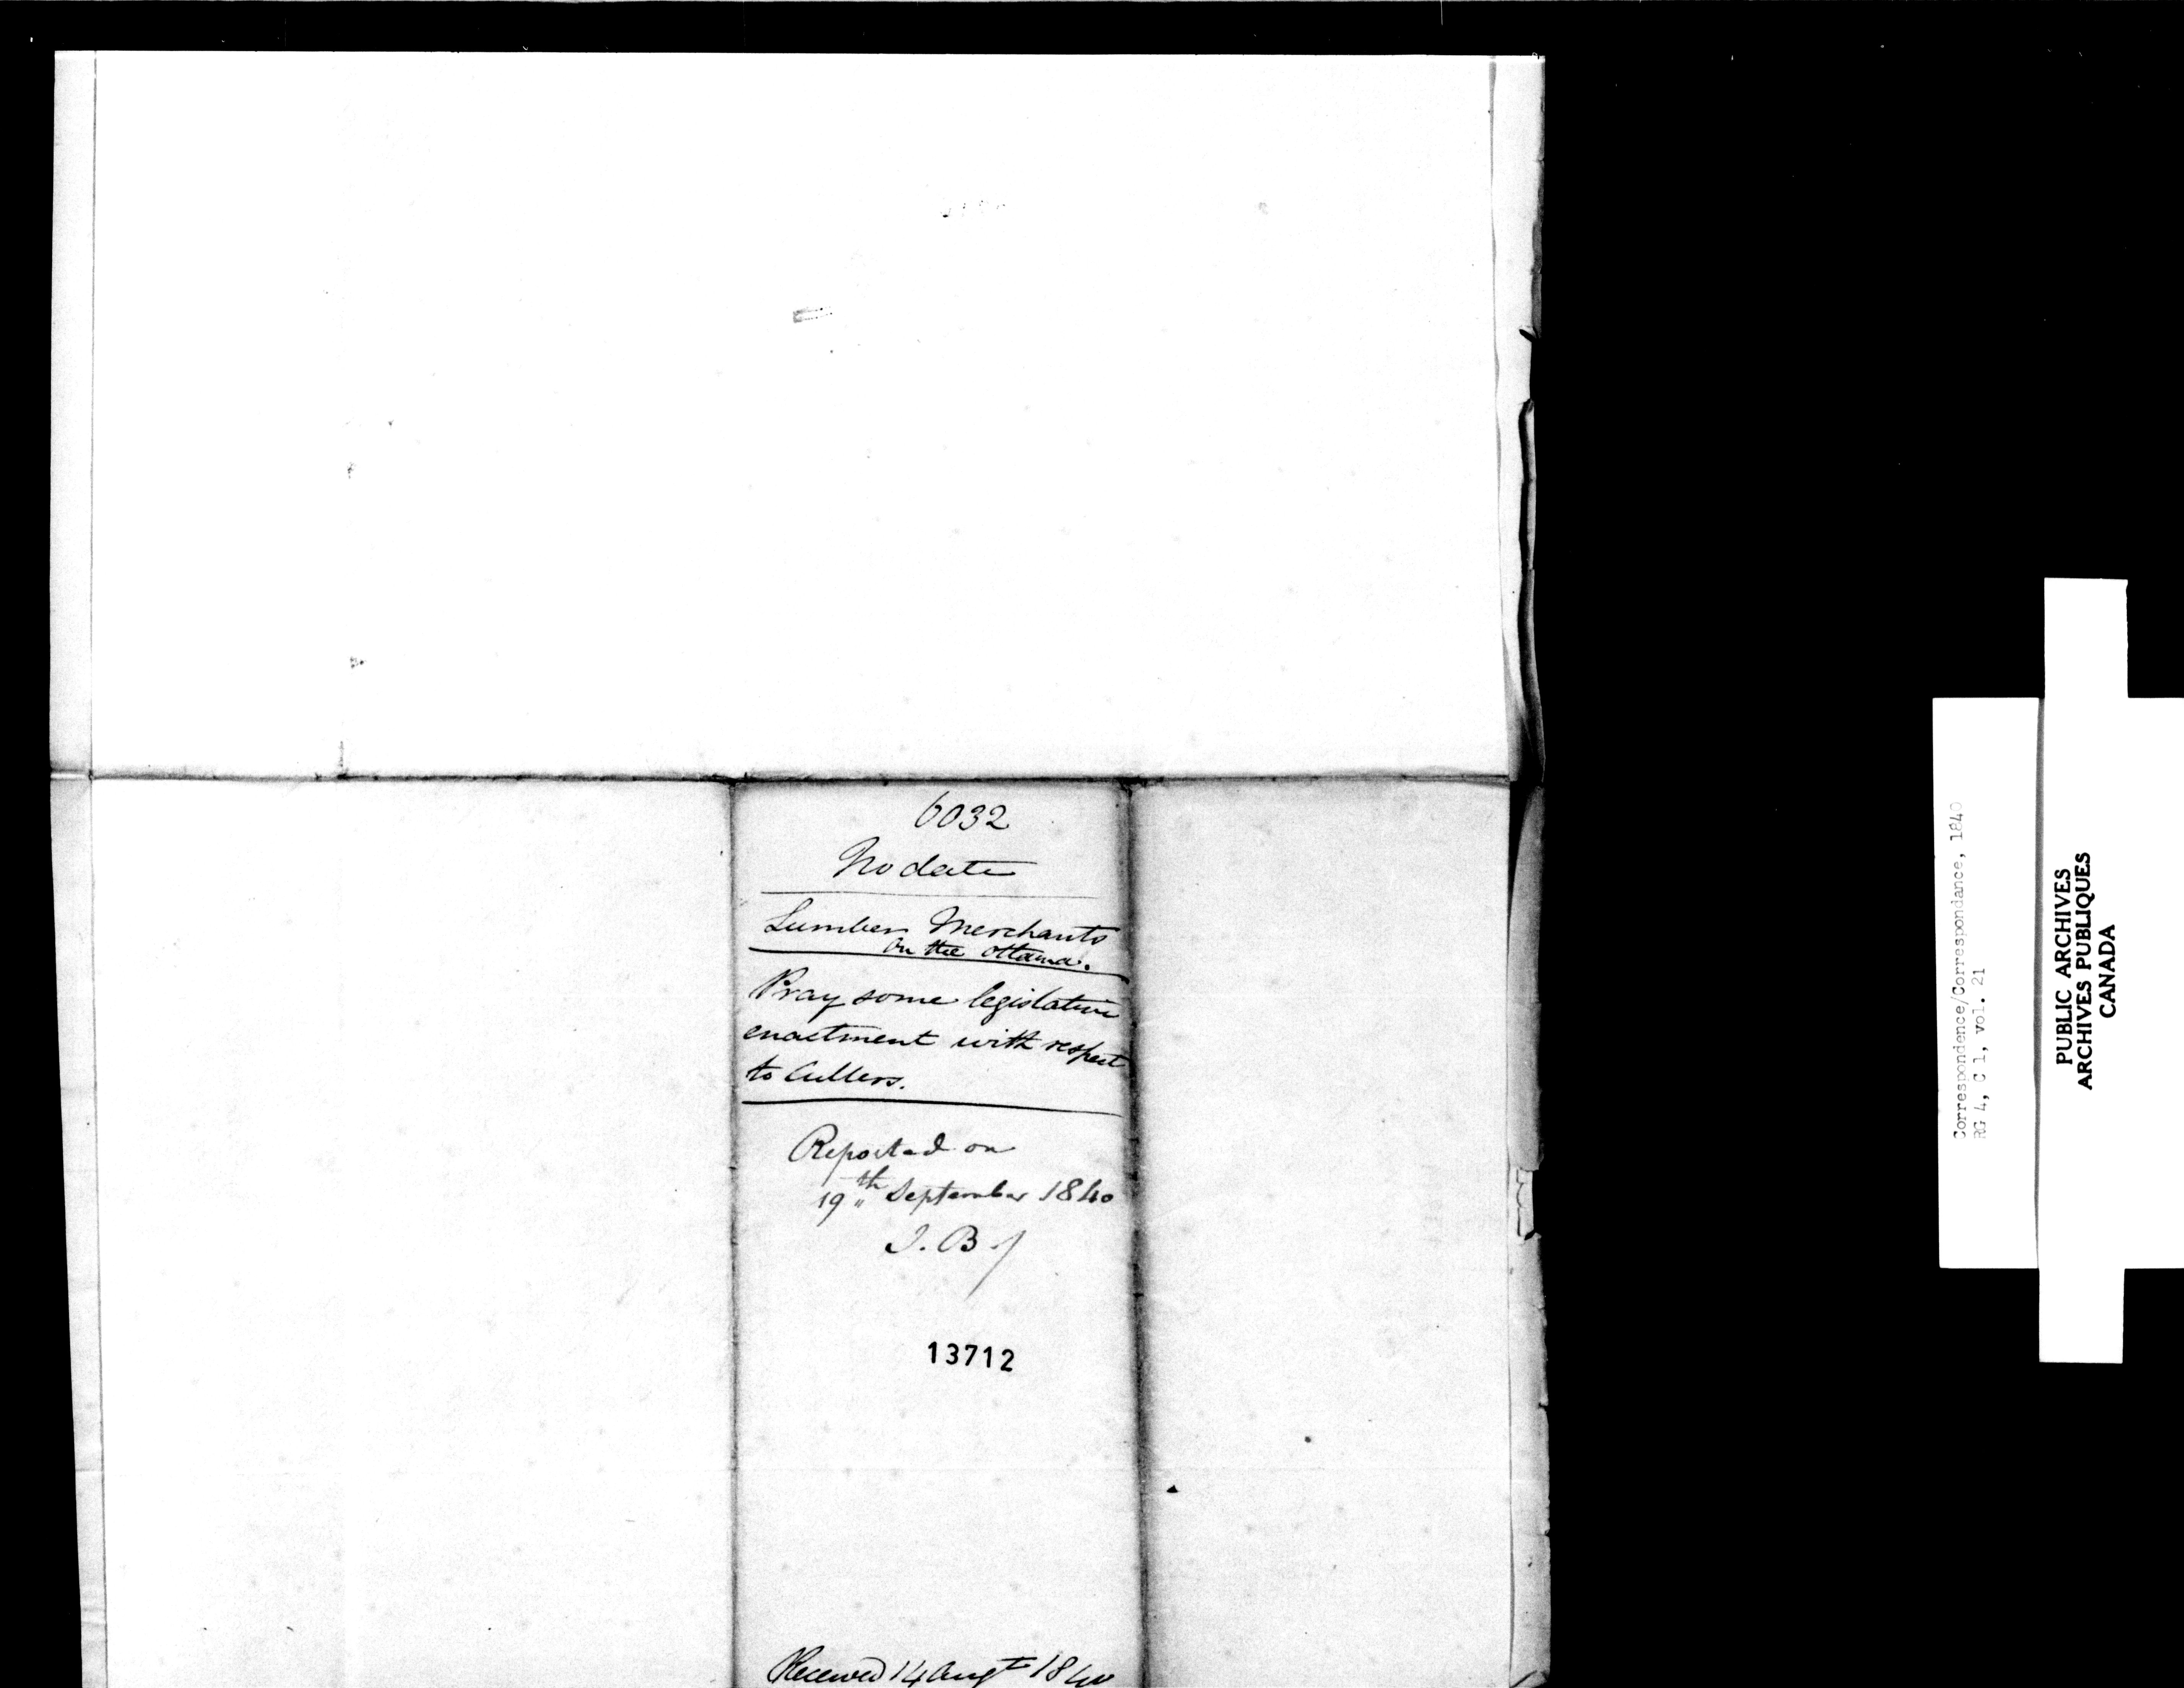 6032
No date
Lumber Merchants
on the Ottawa.
Pray some legislative
enactment with respect
to Cullers.
Reported on
19th September 1840
J. B.
13712
Received 14 Augt 1840
Correspondence/Correspondance, 1840
RG 4, C 1, vol. 21
PUBLIC ARCHIVES
ARCHIVES PUBLIQUES
CANADA